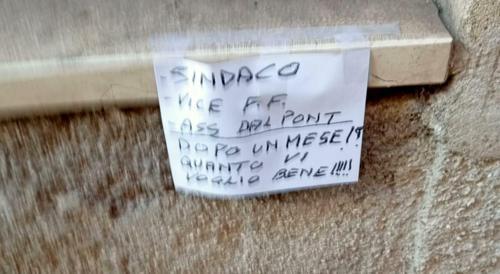 - SINDACO
- VICE F.F.
ASS DAL PONT
DOPO UN MESE!!
QUANTO VI
VOGLIO BENE!!!!!